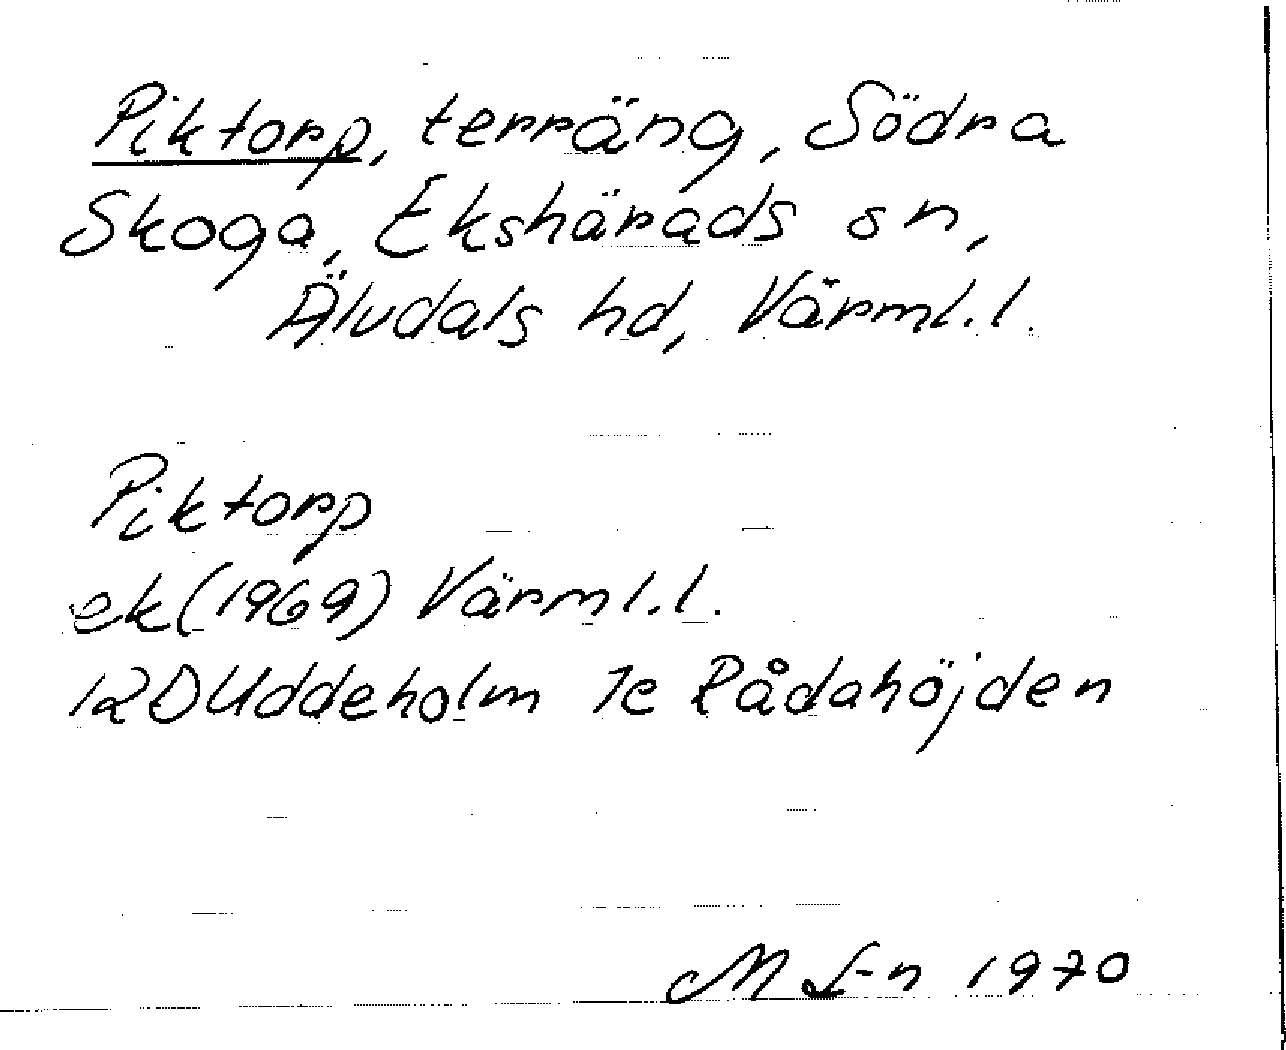 Piktorp, terräng, Södra
Skoga, Ekshärads sn,
Älvdals hd, Värml.l.
Piktorp
ek (1969) Värml.l.
12D Uddeholm 1e Rådahöjden
M L-n 1970